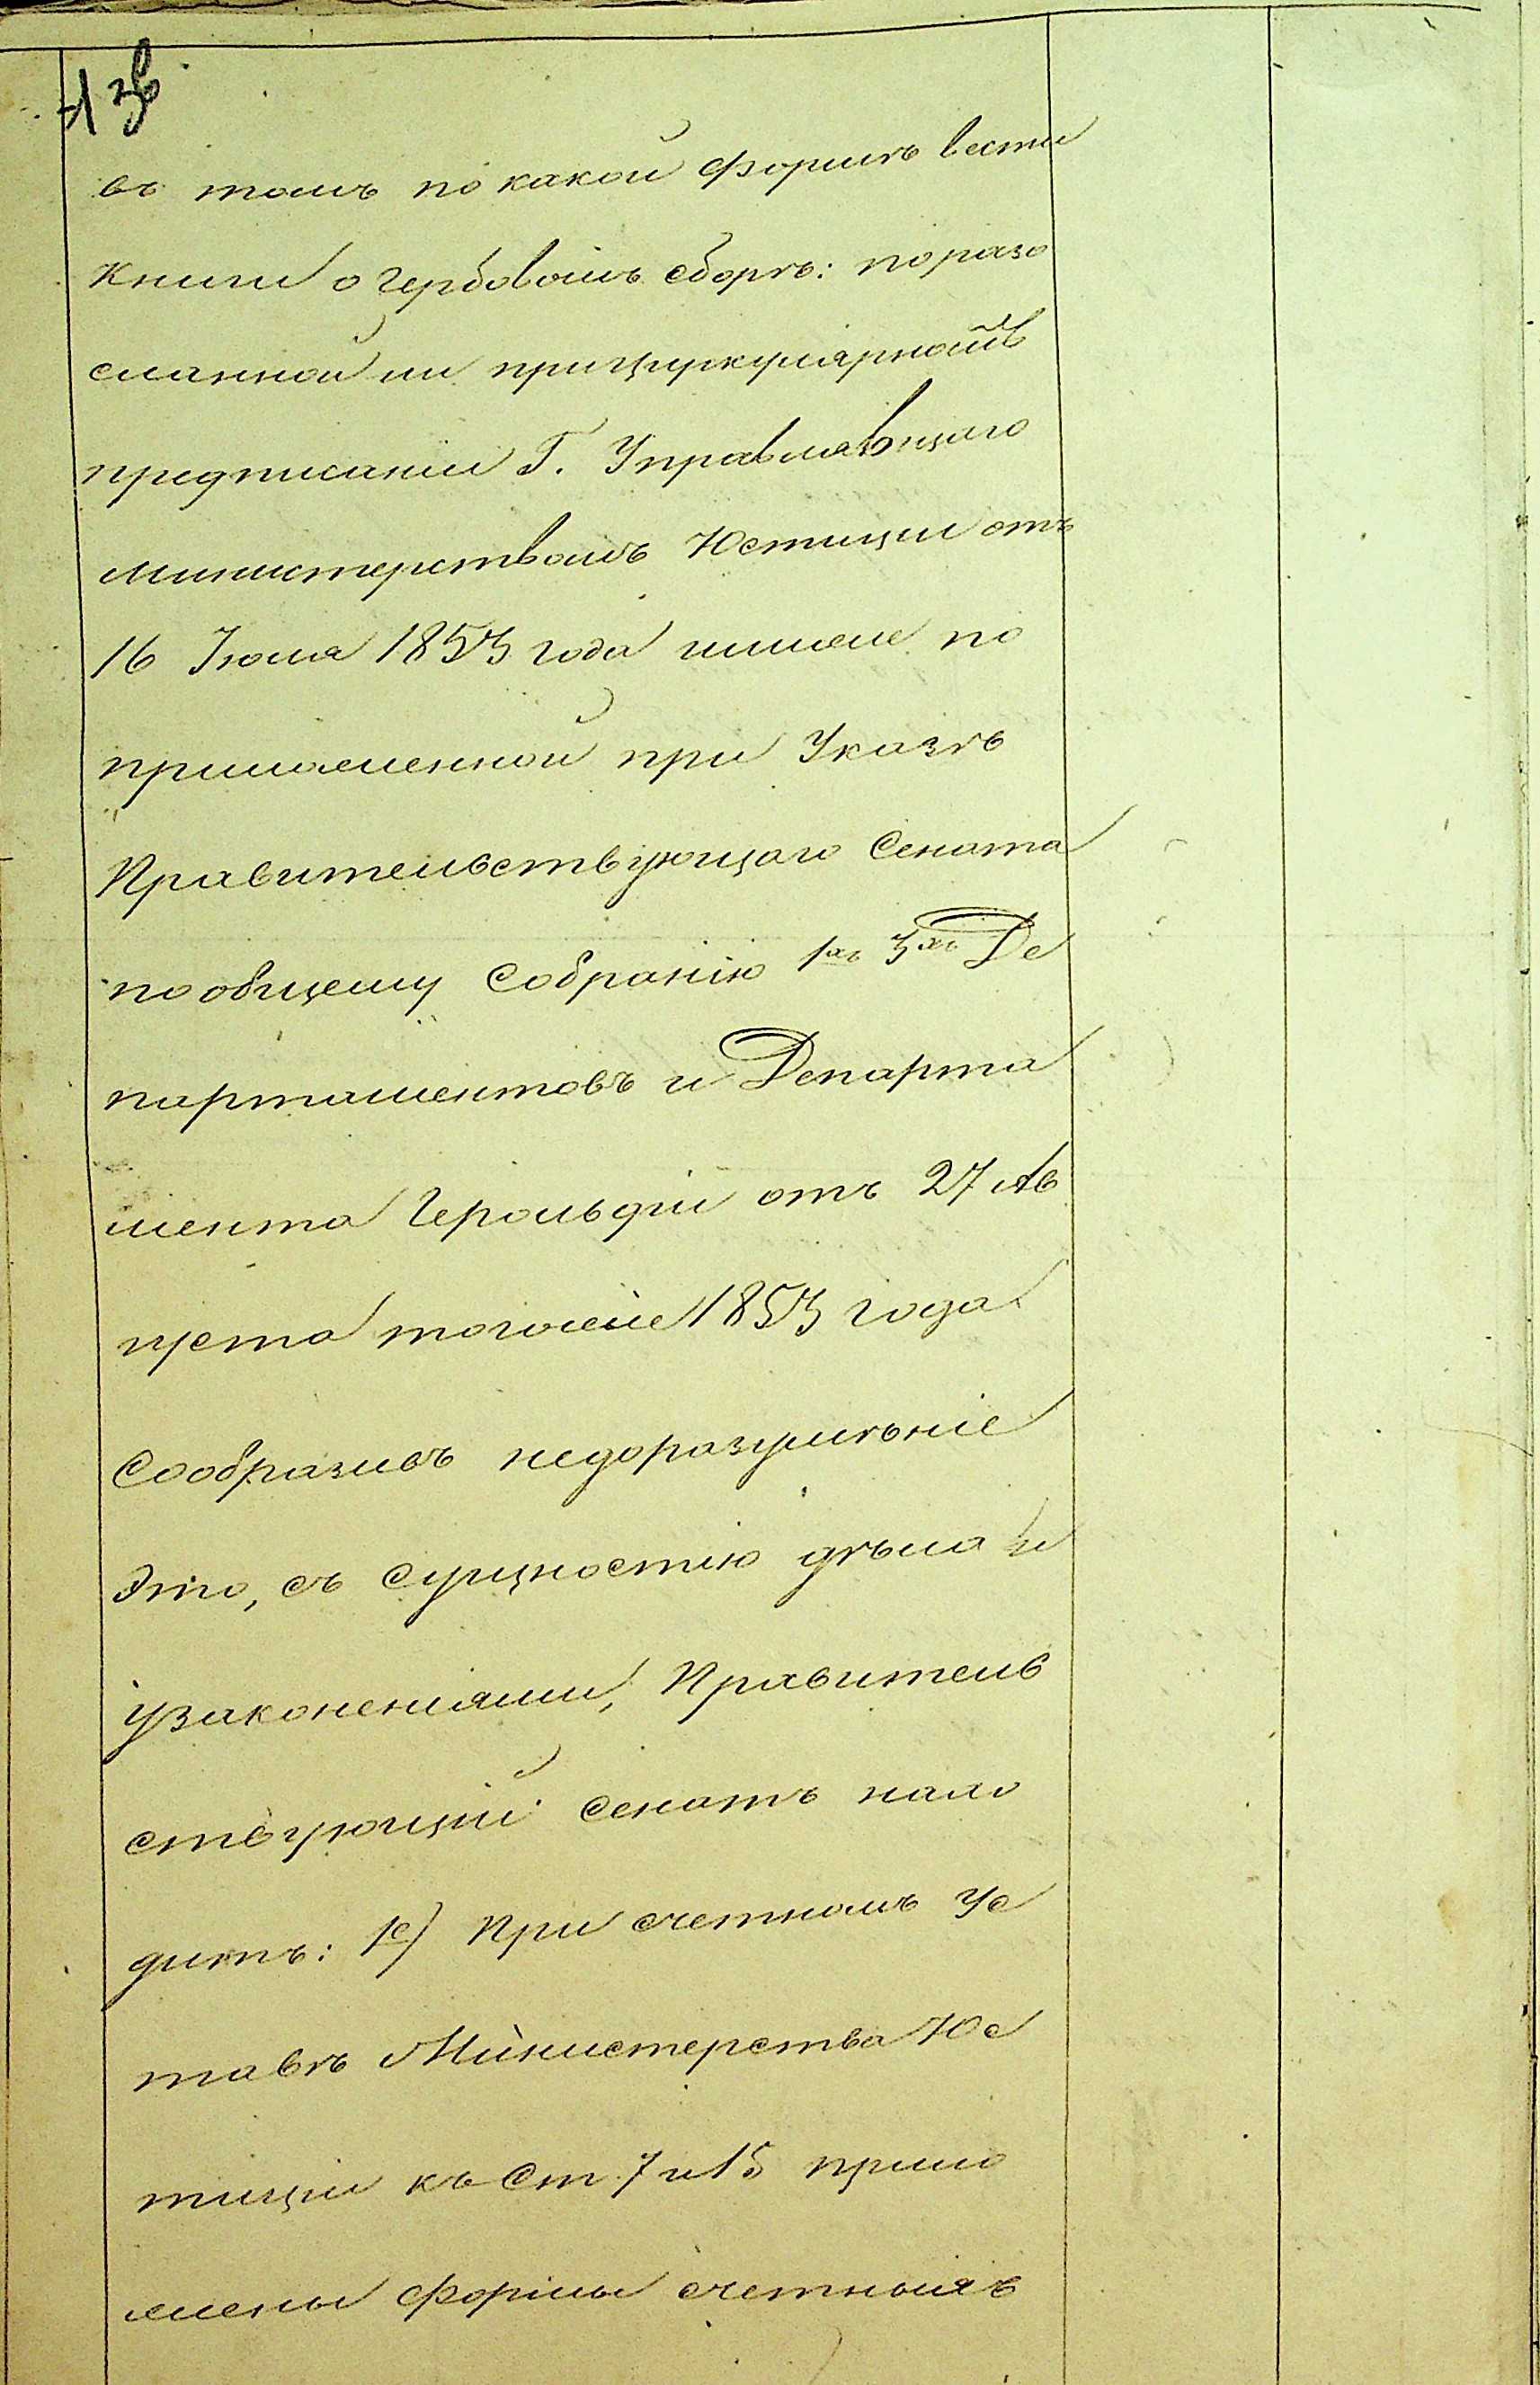 въ томъ по какой формѣ вести
книги о гербовомъ сборѣ: по разо
сланной ли при циркулярномъ
предписаніи Г. Управлявшаго
Министерствомъ Юстиціи отъ
16 Іюля 1853 года или же по
приложенной при Указѣ
Правительствующаго Сената
по общему Собранію 1хъ 3хъ Де
партаментовъ и Департа
мента Герольдіи отъ 27 Ав
густа того же 1853 года
Сообразивъ недоразумѣніе
Это, съ сущностію дѣла и
узаконеніями, Правитель
ствующій Сенатъ нахо
дитъ: 1е) При счетномъ Ус
тавѣ Министерства Юс
тиціи къ Ст. 7 и 15 прило
жены формы счетныхъ